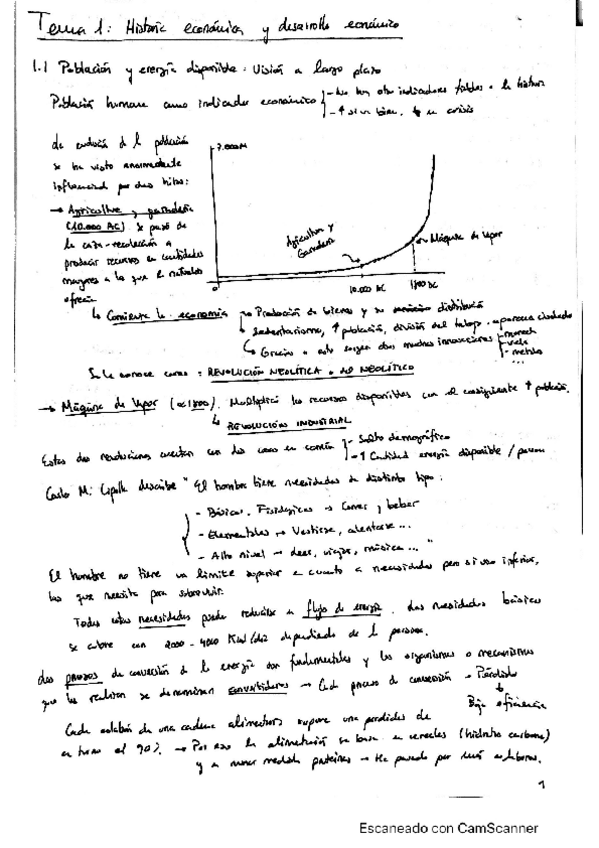 Tema 1: Historia económica y desarrollo económico
1.1 Población y energía disponible. Visión a largo plazo
Población humana como indicador económico - No hay otro indicadores fiables a la historia
- ↑ si va bien, ↓ en crisis
La evolución de la población
se ha visto enormemente
influenciada por dos hitos:
7.000M
→ Agricultura y ganadería
(10.000 AC) se pasó de
la caza-recolección a
producir recursos en cantidades
mayores a lo que la naturaleza
ofrecía
Agricultura y
Ganadería
Máquina de Vapor
0
10.000 AC
1800 DC
↳ Comienza la economía → Producción de bienes y su distribución
→ Sedentarismo, ↑ población, división del trabajo, aparece ciudades
↳ Gracias a esto surgen otras muchas innovaciones
- rueda
- metales
...
Se le conoce como: REVOLUCIÓN NEOLÍTICA o del NEOLÍTICO
→ Máquina de Vapor (≈1800). Multiplicó los recursos disponibles con el consiguiente ↑ población.
↳ REVOLUCIÓN INDUSTRIAL
Estas dos revoluciones cuentan con dos cosas en común - Salto demográfico
- ↑ Cantidad energía disponible / persona
Carlo M. Cipolla describe "El hombre tiene necesidades de distinto tipo:
- Básicas. Fisiológicas → Comer y beber
- Elementales → Vestirse, calentarse...
- Alto nivel → leer, viajar, música..."
El hombre no tiene un límite superior en cuanto a necesidades pero si uno inferior,
las que necesita para sobrevivir.
Todas estas necesidades pueden reducirse a flujo de energía. Las necesidades básicas
se cubren con 2000 - 4000 Kcal/día dependiendo de la persona.
Los procesos de conversión de la energía son fundamentales y los organismos o mecanismos
que los realizan se denominan convertidores → Cada proceso de conversión → Pérdida
↓
Baja eficiencia
Cada eslabón de una cadena alimentaria supone una pérdidas de
en torno al 90%. → Por eso la alimentación se basa en cereales (hidratos carbono)
y a menor medida proteínas → Ha pasado por más eslabones.
1
Escaneado con CamScanner